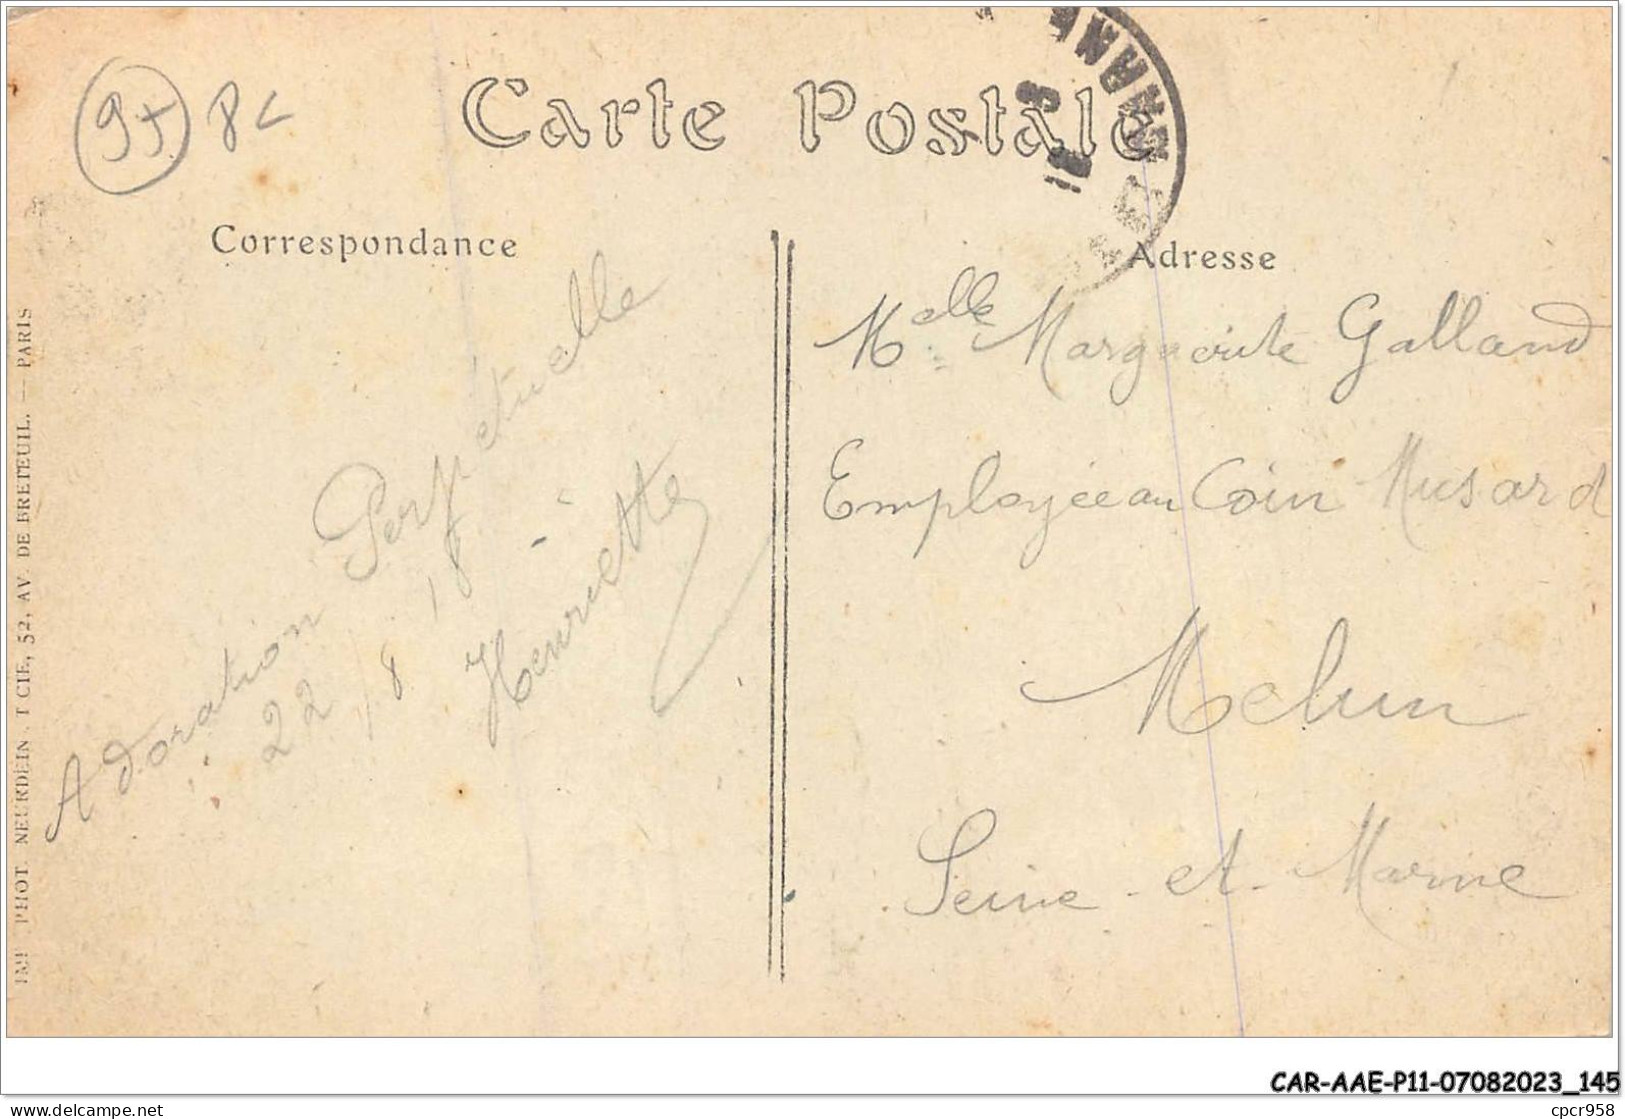 95 8c
Carte Postale
Correspondance
Adresse
Adoration Perpétuelle
22/8/18
Henriette
Melle Marguerite Galland
Employée au Coin Musard
Melun
Seine-et-Marne
IMP PHOT. NEURDEIN ET CIE, 52, AV. DE BRETEUIL. — PARIS
CAR-AAE-P11-07082023_145
delcampe.net
cpcr958